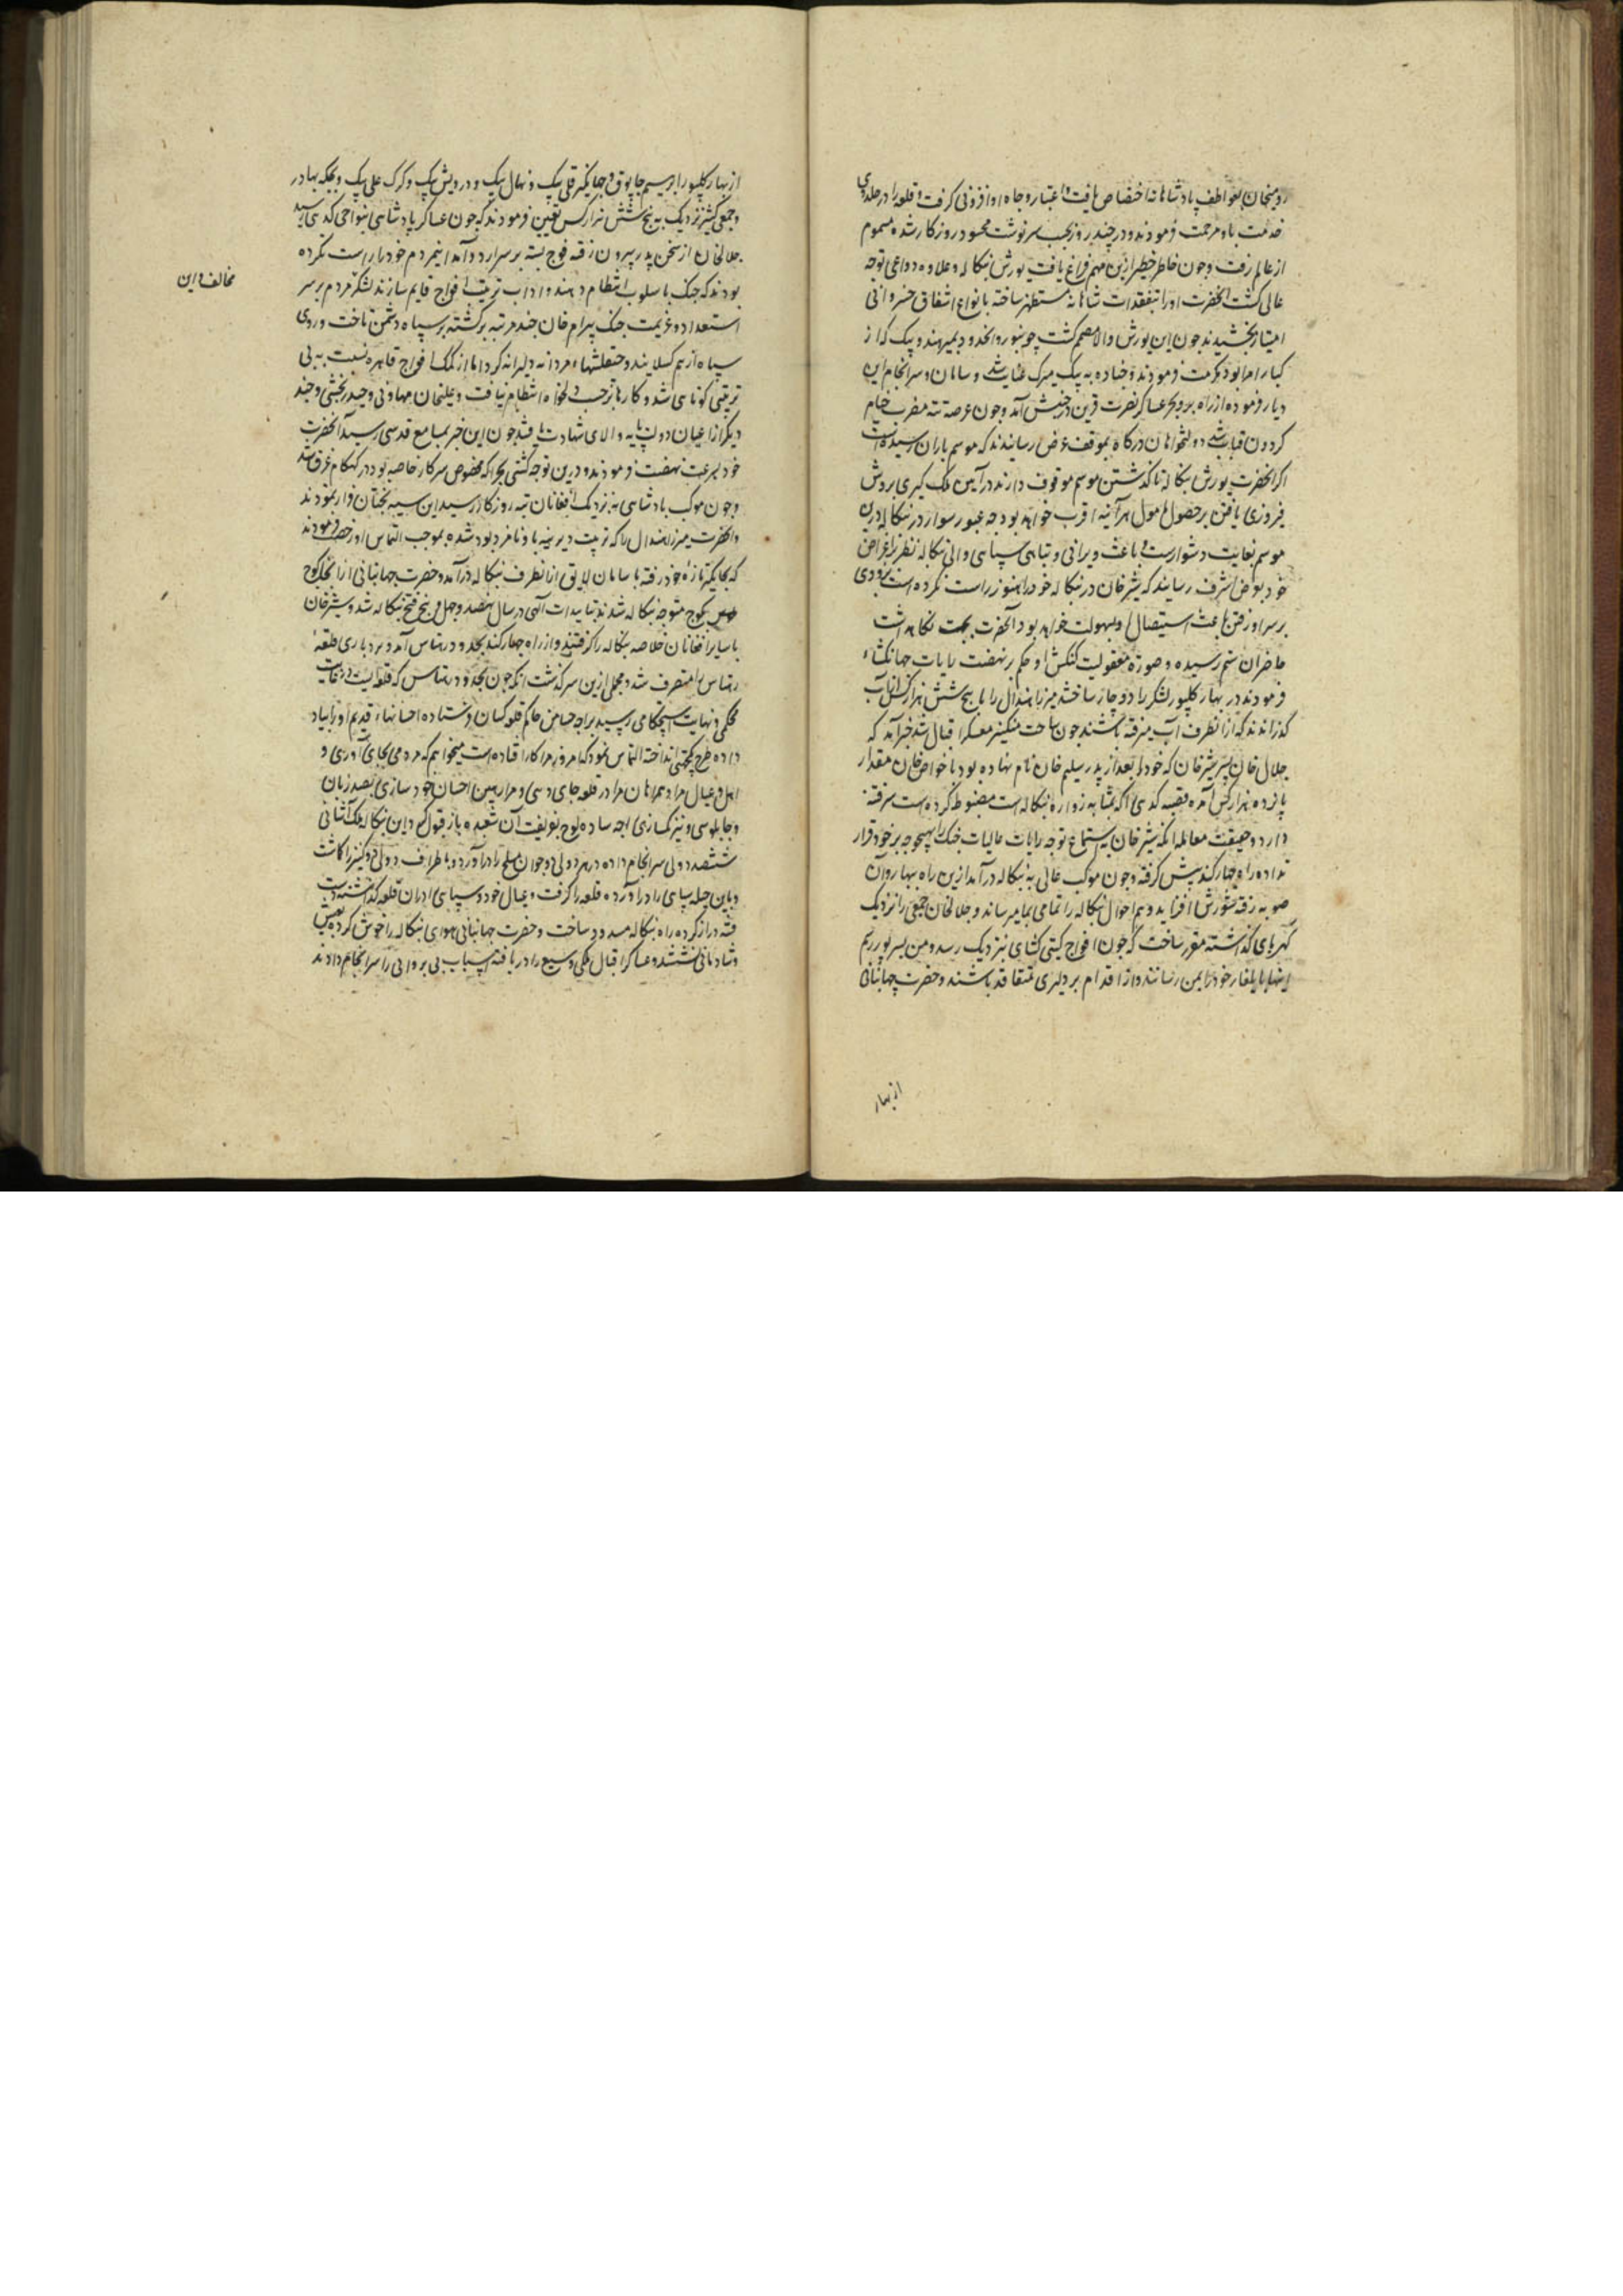 رومیخان بعواطف پادشاهانه اختصاص یافت و اعتبار و جاه او افزونی گرفت و قلعه را در جلدوی
خدمت باو مرحمت فرمودند و در چند روز بحسب سرنوشت محسود روزکار شده مسموم
از عالم رفت و چون خاطر خطیر ازین مهم فراغ یافت یورش بنکاله و علاوه دواعی توجه
عالی کشت آنحضرت اورا بتفقدات شاهانه مستظهر ساخته بانواع اشفاق خسروانی
امتیاز بخشیدند چون این یورش والا مصمم کشت جونپور و انحدود بمیر هندو بیک که از
کبار امرا بود مکرمت فرمودند و چناده به بیک میرک عنایت شد و سامان و سرانجام این
دیار فرموده از راه بر و بحر عساکر نصرت قرین در جنبش آمد و چون عرصه پتنه مضرب خیام
کردون قباب شد دولتخواهان درکاه بموقف عرض رسانیدند که موسم باران رسیده است
اکر آنحضرت یورش بنکاله تا کذشتن موسم موقوف دارند در آیین ملک کیری بروش
فیروزی یافتن بر حصول مامول هرآینه اقرب خواهد بود چه عبور سوار در بنکاله درین
موسم بغایت دشوارست و باعث ویرانی و تباهی سپاهی والی بنکاله نظر بر اغراض
خود بعرض اشرف رسانید که شیرخان در بنکاله خود را هنوز راست نکرده است بزودی
بر سر او رفتن باعث استیصال او بسهولت خواهد بود آنحضرت بجهت نکاهداشت
خاطر آن ستم رسیده و صورة معقولیت کنکش او حکم بر نهضت رایات جهانکشاء
فرمودند در بهارکلپور لشکر را دو جا ساخته میرزا هندال را با پنج شش هزار کس از آب
کذرانیدند که از آنطرف آب میرفته باشند چون ساحت منکیر معسکر اقبال شد خبر آمد که
جلال خان پسر شیرخان که خود را بعد از پدر سلیم خان نام نهاده بود با خواص خان مقدار
پانزده هزار کس آمده قصبه کدهی را که بمثابه دروازه بنکاله است مضبوط کرده است
دارد و حقیقت معامله آنکه شیرخان باستماع توجه رایات عالیات جنک را بهیچوجه بر خود قرار
نداده راه چهارکند پیش کرفته و چون موکب عالی به بنکاله درآمد ازین راه بهار و آن
صوبه رفته شورش افزاید و هم احوال بنکاله را تمامی بمأمن رساند و جلالخان جمعی را نزدیک
کدهی کذاشته مقرر ساخت که چون افواج کیتی کشای نزدیک رسد و من بشیرپور رسم
اینها بایلغار خود را بمن رسانند و از اقدام بر دلیری متقاعد باشند و حضرت جهانبانی
از بهار
از بهارکلپور ابراهیم جابوق و جهانکیر قلی بیک و نهال بیک و درویش بیک و کرک علی بیک و بچکه بهادر
و جمعی کثیر نزدیک به پنج شش هزار کس تعین فرمودند که چون عساکر پادشاهی بنواحی کدهی رسید
جلالخان از سخن پدر بیرون رفته فوج بسته بر سر اردو آمد این مردم خود را راست نکرده
بودند که جنک باسلوب انتظام دهند و آداب ترتیب افواج قایم سازند لشکر مردم بر سر
مخالف و این
استعداد و عزیمت جنک بیرام خان چند مرتبه برکشته بر سپاه دشمن تاخت و روی
سپاه از هم کسلانید و جنقلشهاء مردانه دلیرانه کرد اما از کمک افواج قاهره نسبت به بی
ترتیبی کوتاهی شد و کارها بر حسب دلخواه انتظام نیافت و علیخان مهاونی و حیدر بخشی و چند
دیکر از اعیان دولت بپایه والای شهادت یافتند چون این خبر بمسامع قدسی رسید آنحضرت
خود بسرعت نهضت فرمودند و درین توجه کشتی بحرا که مخصوص سرکار خاصه بود در کهلکام غرق شد
و چون موکب پادشاهی نزدیک افغانان تیره روزکار رسید این سیه بختان فرار نمودند
و آنحضرت میرزا هندال را که تربیت دیرینه باو نامزد بود شده بموجب التماس او رخصت فرمودند
که بجایکیر تازه خود رفته با سامان لایق از آنطرف بنکاله درآمد و حضرت جهانبانی از آنجا کوچ
بکوچ متوجه بنکاله شدند بتاییدات الهی در سال نهصد و چهل و پنج فتح بنکاله شد و شیرخان
با سایر افغانان خلاصه بنکاله را کرفته و از راه چهارکند بحدود رهتاس آمد و بردباری قلعه
رهتاس را متصرف شد و مجملی ازین سرکذشت آنکه چون بحدود رهتاس که قلعه ایست در غایت
محکمی و نهایت استحکامی رسید براجه چنتامن حاکم قلعه کسان فرستاده احسانهاء قدیم او را بیاد
داده طرح یکجهتی انداخته التماس نمود که امروز مرا کار افتاده است میخواهم که مردمی بجای آوری و
اهل و عیال مرا و همراهان مرا در قلعه جای دهی و مرا رهین احسان خود سازی بصد زبان
و چاپلوسی و نیرنک سازی راجه ساده لوح بفریفت آن شعبده باز قبول کرد این بیکانه ملک آشنائی
ششصد دولی سرانجام داده در هر دولی دو جوان مسلح را درآورد و باطراف دولی کنیزان را کماشت
و باین حیله سپاهی را درآورده قلعه را کرفت و عیال خود و سپاهی را در آن قلعه کذاشته دست
فتنه دراز کرده راه بنکاله مسدود ساخت و حضرت جهانبانی هوای بنکاله را خوش کرده بعیش
و شادمانی نشستند و عساکر اقبال ملکی وسیع را دریافته اسباب بی پروائی را سرانجام دادند